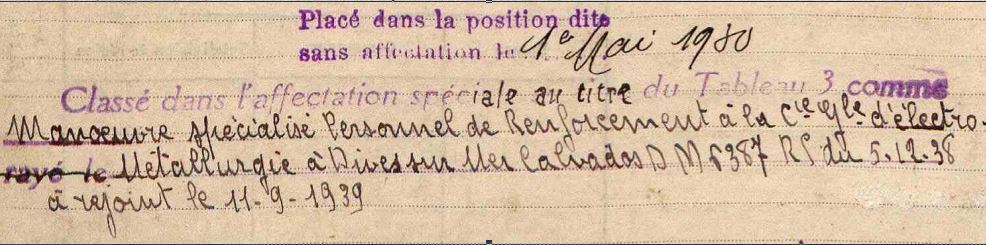 Placé dans la position dite
sans affectation le 1er Mai 1930
Classé dans l'affectation spéciale au titre du Tableau 3 comme
Manœuvre spécialisé Personnel de Renforcement à la Cie Gle d'électro-
rayé le Métallurgie à Dives sur Mer Calvados D M 6387 RS du 5.12.38
a rejoint le 11-9-1939